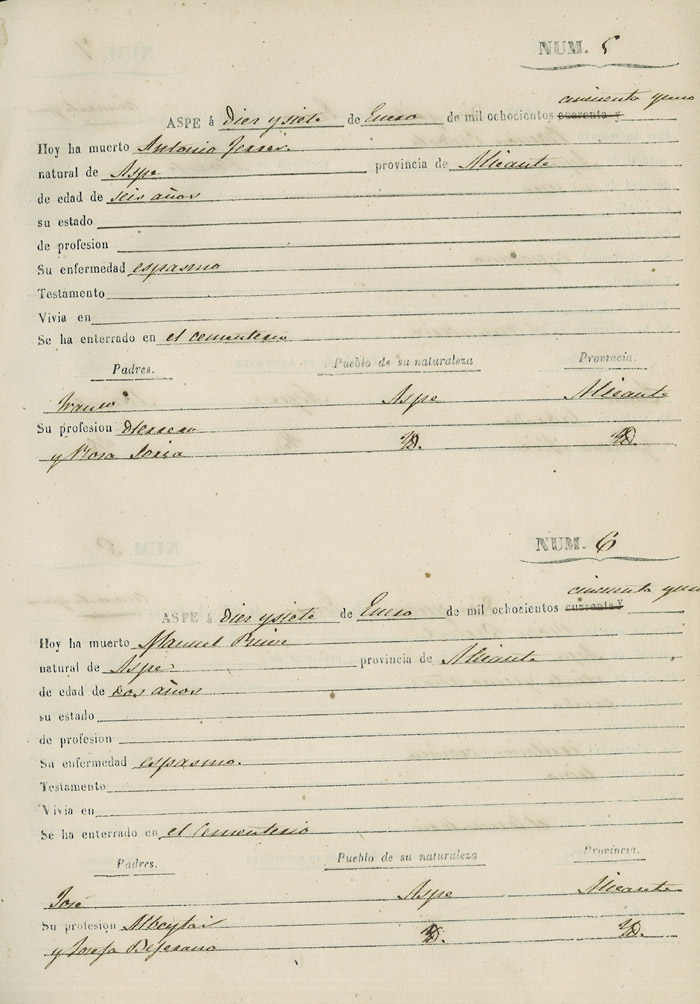 NUM. 5
cincuenta y uno
ASPE á Diez y siete de Enero de mil ochocientos cuarenta y
Hoy ha muerto Antonio Ferrer
natural de Aspe provincia de Alicante
de edad de seis años
su estado
de profesion
Su enfermedad espasmo
Testamento
Vivia en
Se ha enterrado en el cementerio
Padres. Pueblo de su naturaleza Provincia.
Aspe Alicante
Su profesion Herrero
y Rosa Soria YD. YD.
NUM. 6
cincuenta y uno
ASPE á Diez y siete de Enero de mil ochocientos cuarenta y
Hoy ha muerto Manuel
natural de Aspe provincia de Alicante
de edad de Dos años
su estado
de profesion
Su enfermedad espasmo.
Testamento
Vivia en
Se ha enterrado en el cementerio
Padres. Pueblo de su naturaleza Provincia.
José Aspe Alicante
Su profesion Albeytar
y Josefa YD. YD.